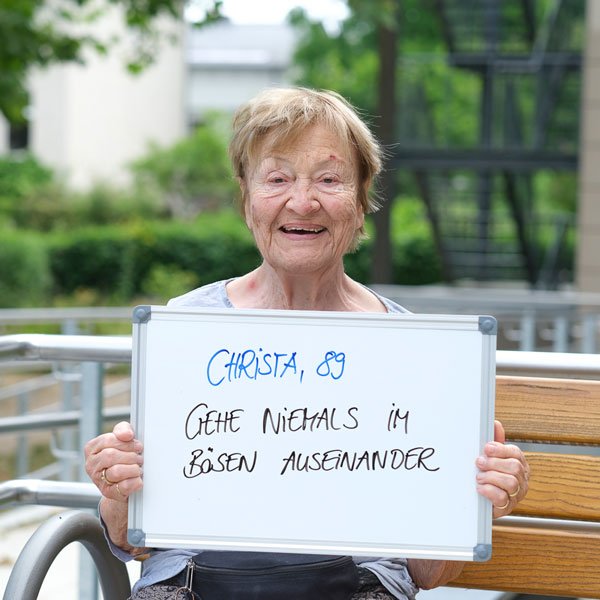 CHRISTA, 89
GEHE NIEMALS IM
BÖSEN AUSEINANDER